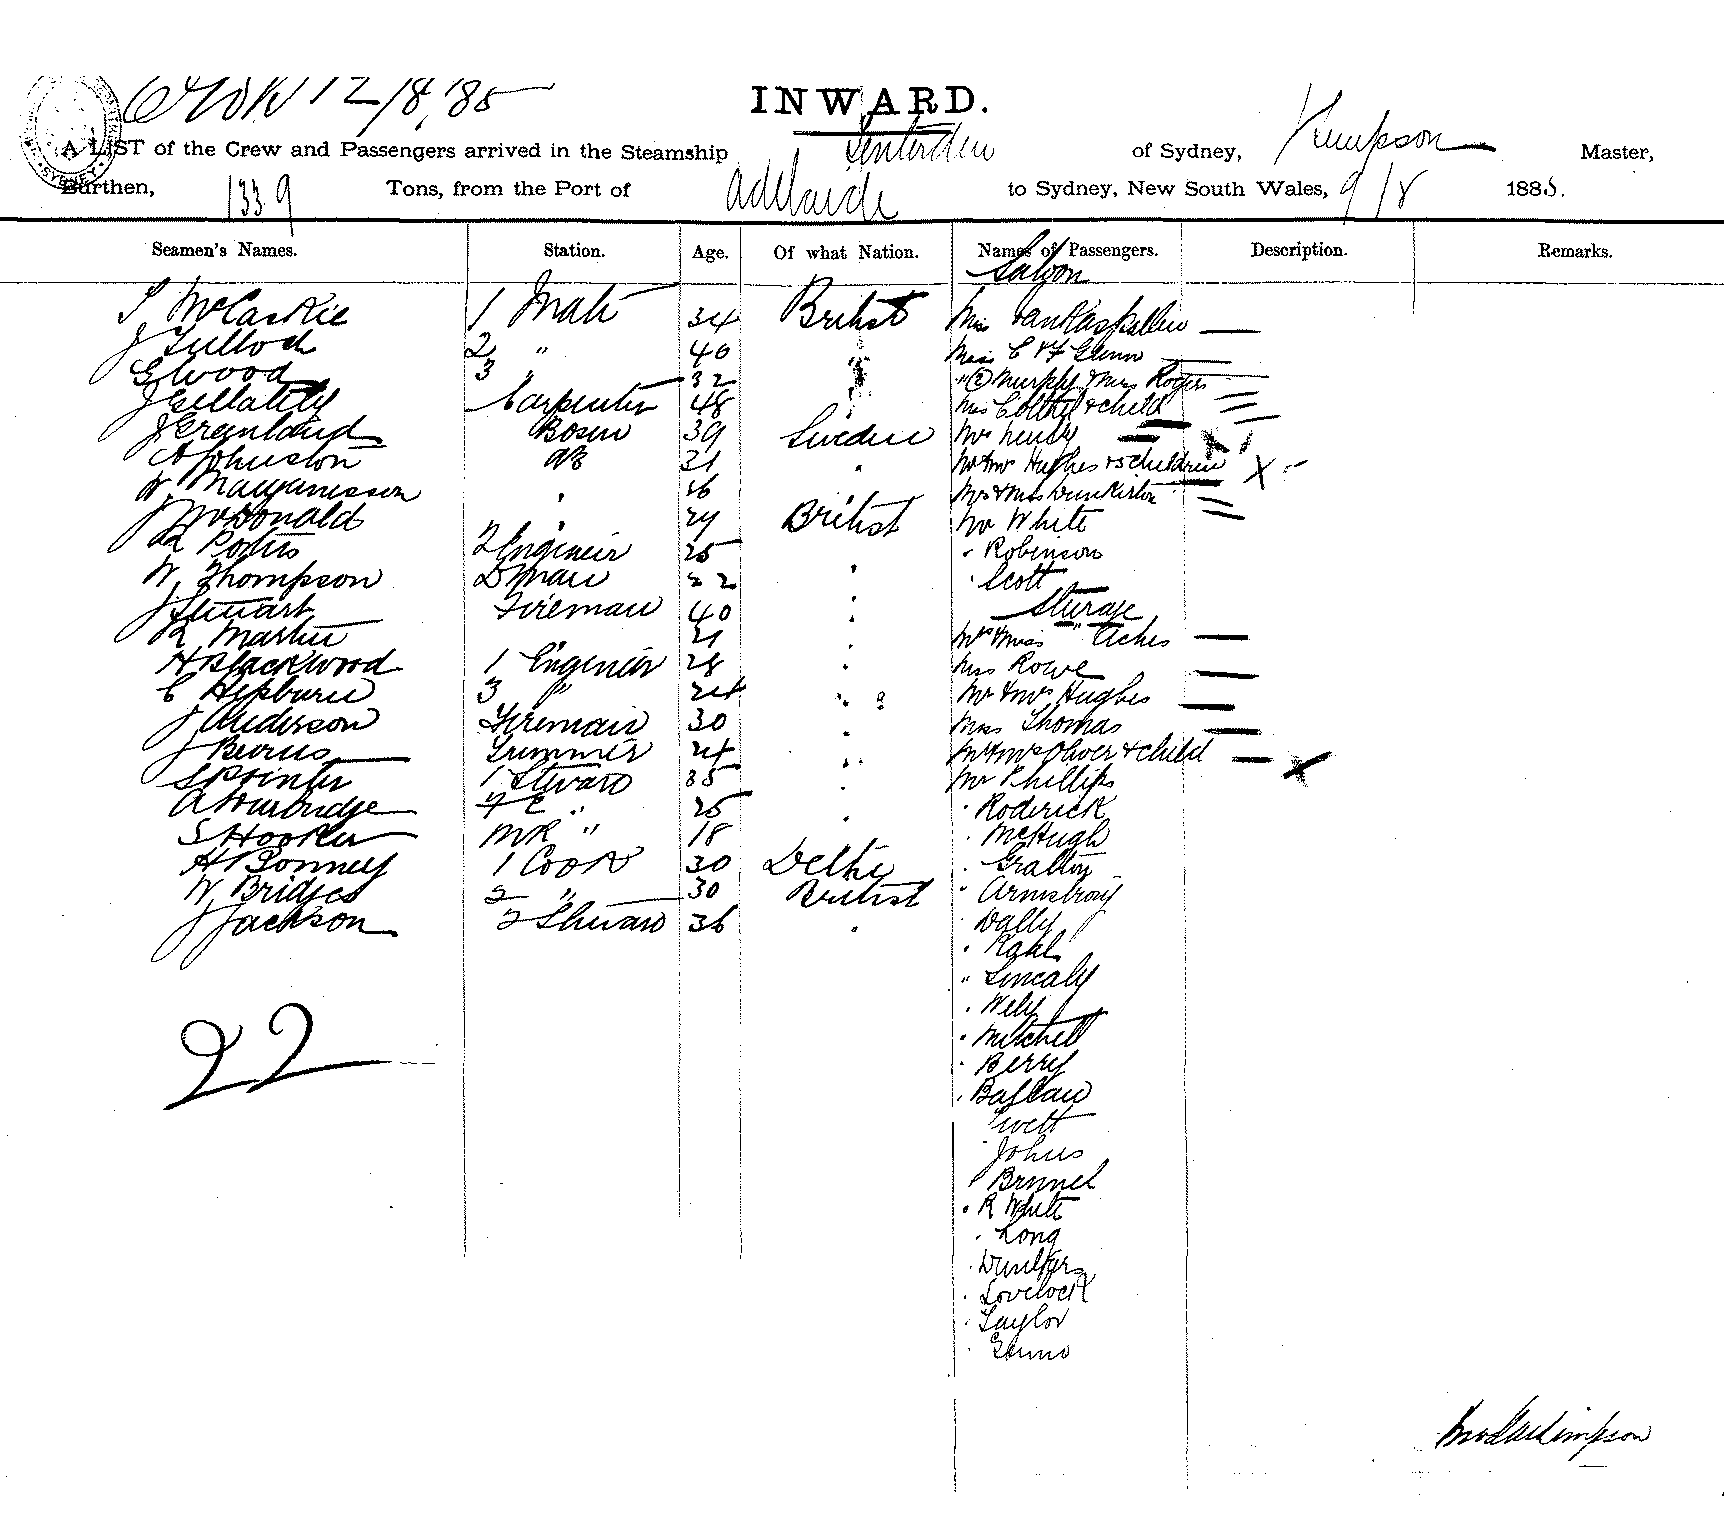 12/8/85
INWARD.
A LIST of the Crew and Passengers arrived in the Steamship Tenterden of Sydney, Master,
Burthen, 1339 Tons, from the Port of Adelaide to Sydney, New South Wales, 9/8 1885.
Seamen's Names. Station. Age. Of what Nation. Names of Passengers. Description. Remarks.
Saloon
McCaskie 1 Mate 34 British Miss
J Tulloch 2 " 40 " Miss C & F Gunn
G Wood 3 " 32 " " (2) Murphy & Mrs Rogers
J Gellatly Carpenter 48 " Mrs & child
J Greenland Bosun 39 Sweden Mr Hendy
A Johnston AB 21 " Mr & Mrs Hughes & 5 children X
Magnusson " 26 " Mr & Mrs Dunkerton
J McDonald " 24 British Mr White
R Portis 2 Engineer 25 " " Robinson
W. Thompson Dman 22 " " Scott
J Stewart Fireman 40 " Sterage
R Martin " 21 " Mrs & Miss Aches
H Blackwood 1 Engineer 28 " Mrs Rowe
C Hepburn 3 " 24 " " Mr & Mrs Hughes
J Anderson Fireman 30 " Mrs Thomas
J Trimmer 24 " Mr & Mrs Oliver & child X
S Pointer 1 Steward 35 " Mr Phillips
A " 25 " " Roderick
S Hooker MR " 18 " McHugh
H Bonney 1 Cook 30 " Gratton
W. Bridges 2 " 30 British " Armstrong
J Jackson 2 Steward 36 " " Dally
" Kahl
"
22
" Wely
" Mitchell
" Berry
"
" Johns
" R White
" Long
"
" Lovelock
" Taylor
"